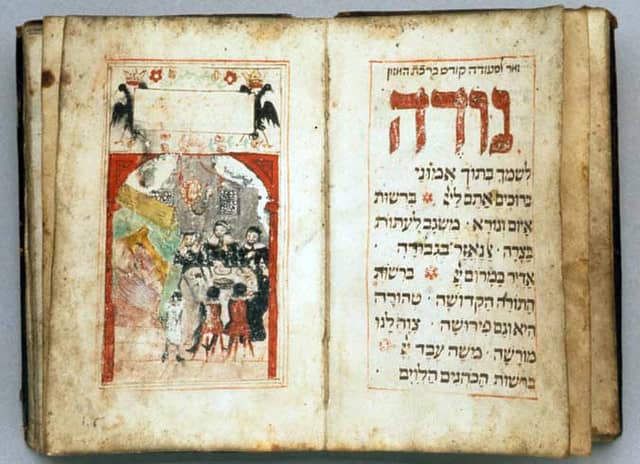 קודם ברכת המזון
נודה
לשמך בתוך אמוני
ברוכים אתם ליי ברשות
איום ונורא · משגב לעתות
בצרה · אל נאזר בגבורה ·
אדיר במרום יי ברשות
התורה הקדושה · טהורה
היא וגם פירושה · צוה לנו
מורשה · משה עבד יי
ברשות הכהנים הלוים